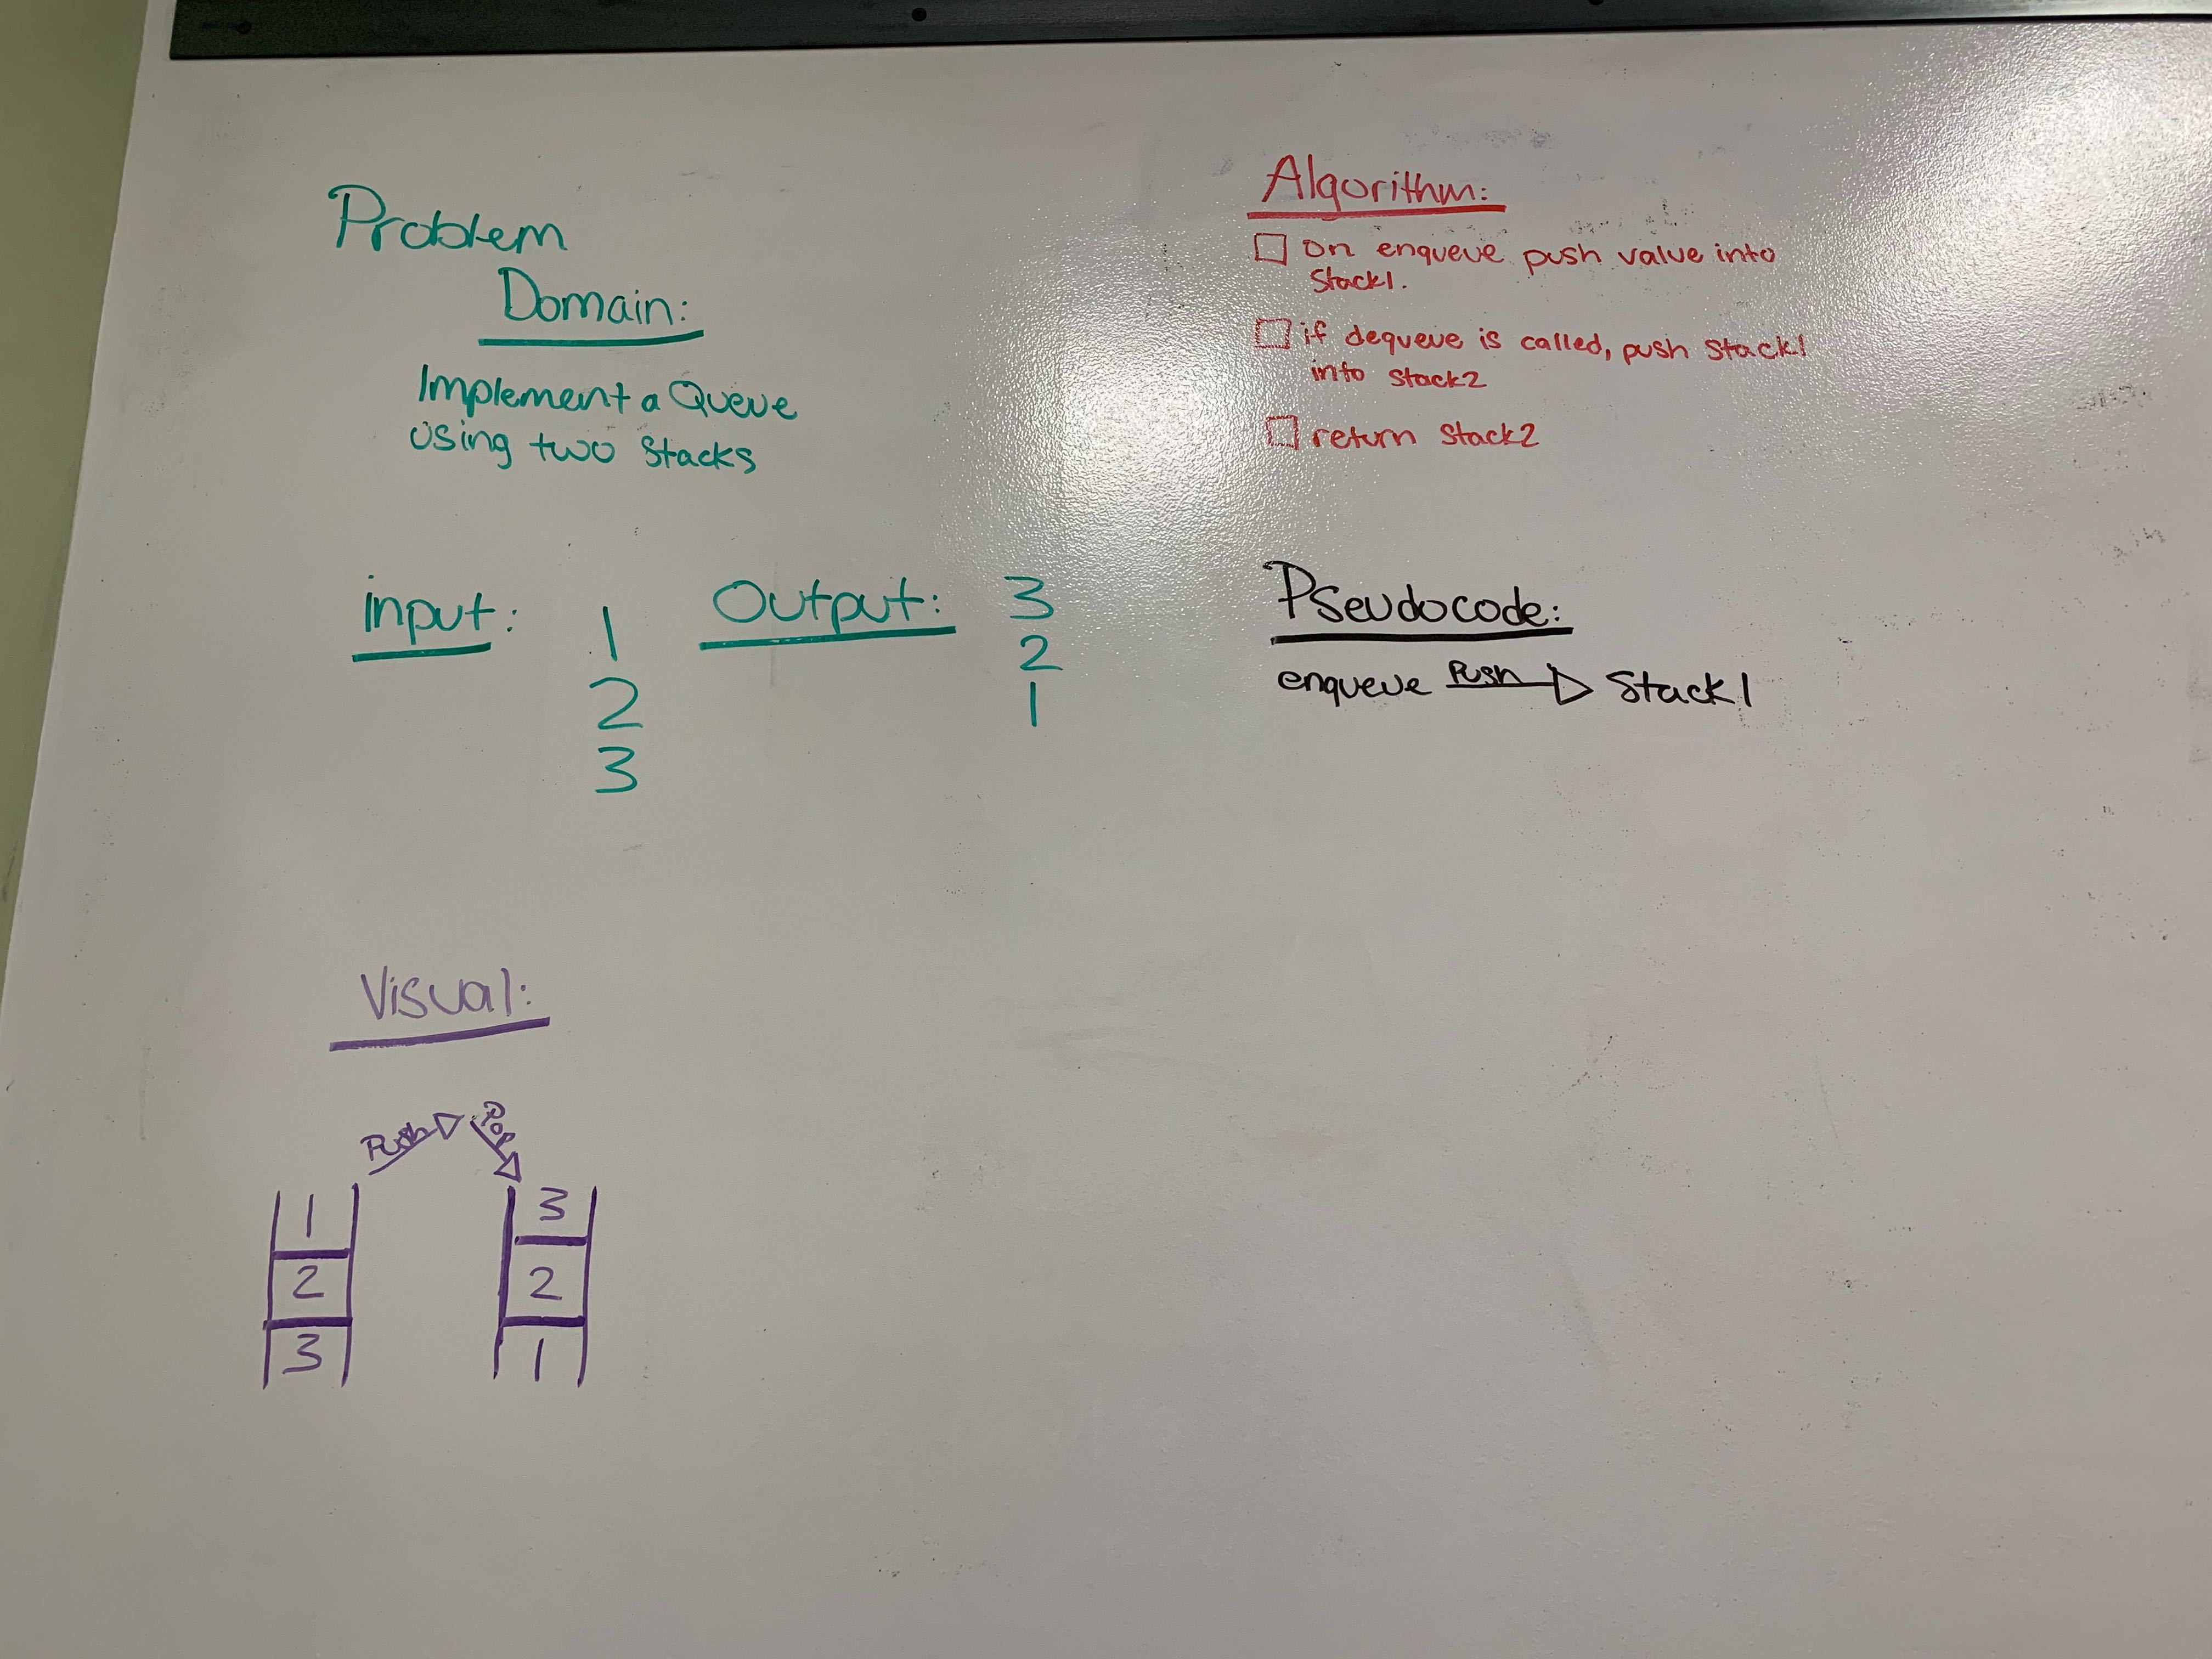 Problem
Domain:
Implement a Queue
using two Stacks
input:
1
2
3
Output:
3
2
1
Visual:
Push
Pop
1
2
3
3
2
1
Algorithm:
on enqueue push value into
Stack1.
if dequeue is called, push stack1
into stack2
return stack2
Pseudocode:
enqueue Push Stack1